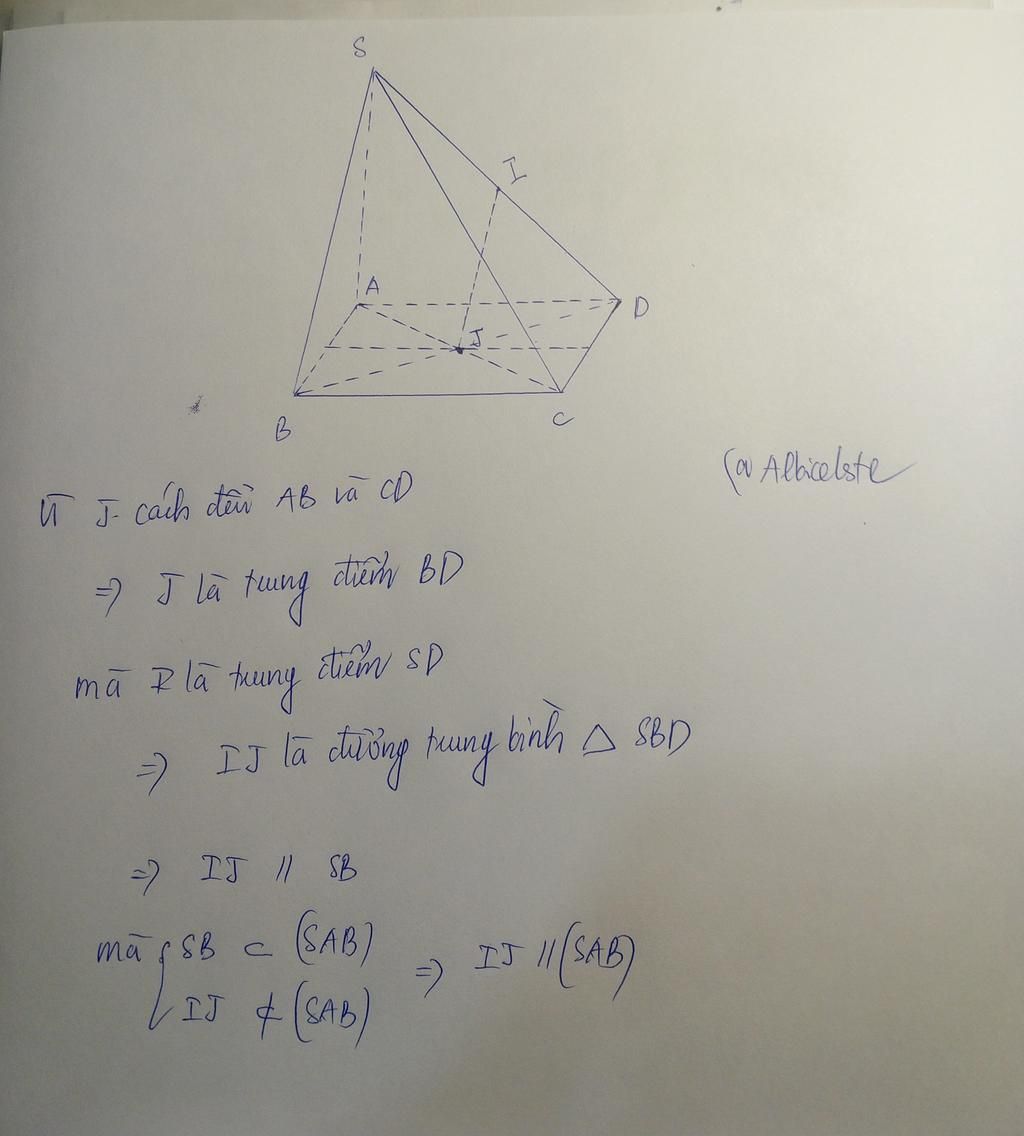 S
I
A
D
J
B
C
@Albicelste
Vì J cách đều AB và CD
=> J là trung điểm BD
mà I là trung điểm SD
=> IJ là đường trung bình △ SBD
=> IJ // SB
mà { SB ⊂ (SAB)
IJ ⊄ (SAB) => IJ // (SAB)